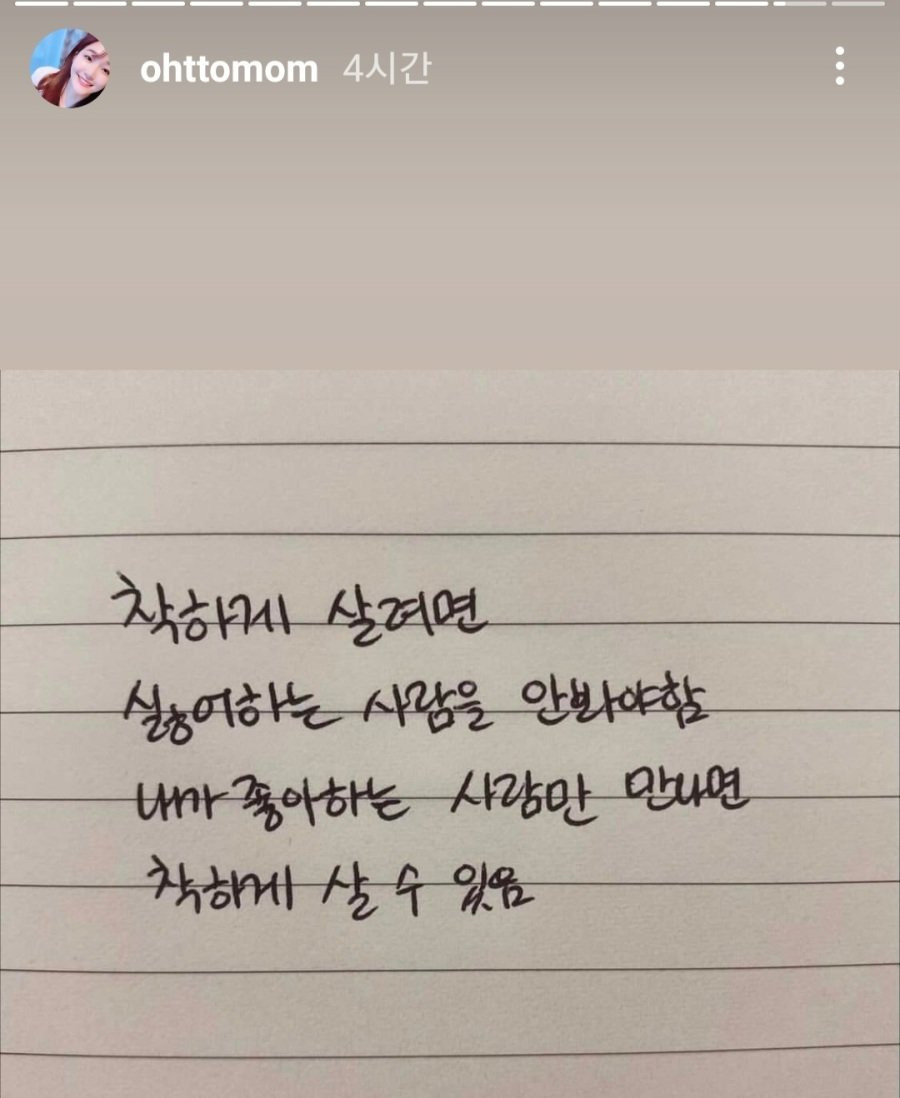 ohttomom 4시간
착하게 살려면
싫어하는 사람을 안봐야함
내가 좋아하는 사람만 만나면
착하게 살 수 있음